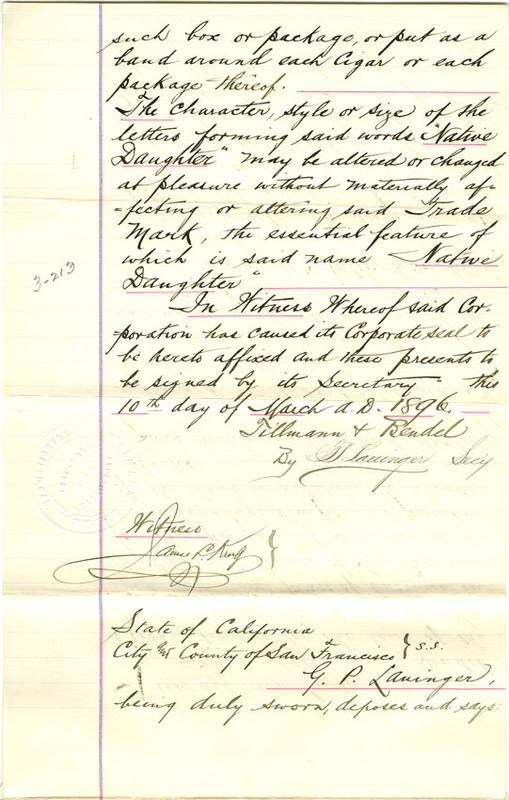 such box or package, or put as a
band around each Cigar or each
package thereof.
The Character, style or size of the
letters forming said words "Native
Daughter" may be altered or changed
at pleasure without materially af-
-fecting or altering said Trade
Mark, the essential feature of
which is said name "Native
Daughter"
3-213
In Witness Whereof said Cor-
-poration has caused its Corporate seal to
be hereto affixed and these presents to
be signed by its Secretary this
10th day of March A.D. 1896.
Tillmann & Bendel
By Lauinger Secy
Witness
James R. King
State of California
City and County of San Francisco } S.S.
G. P. Lauinger,
being duly sworn, deposes and says: